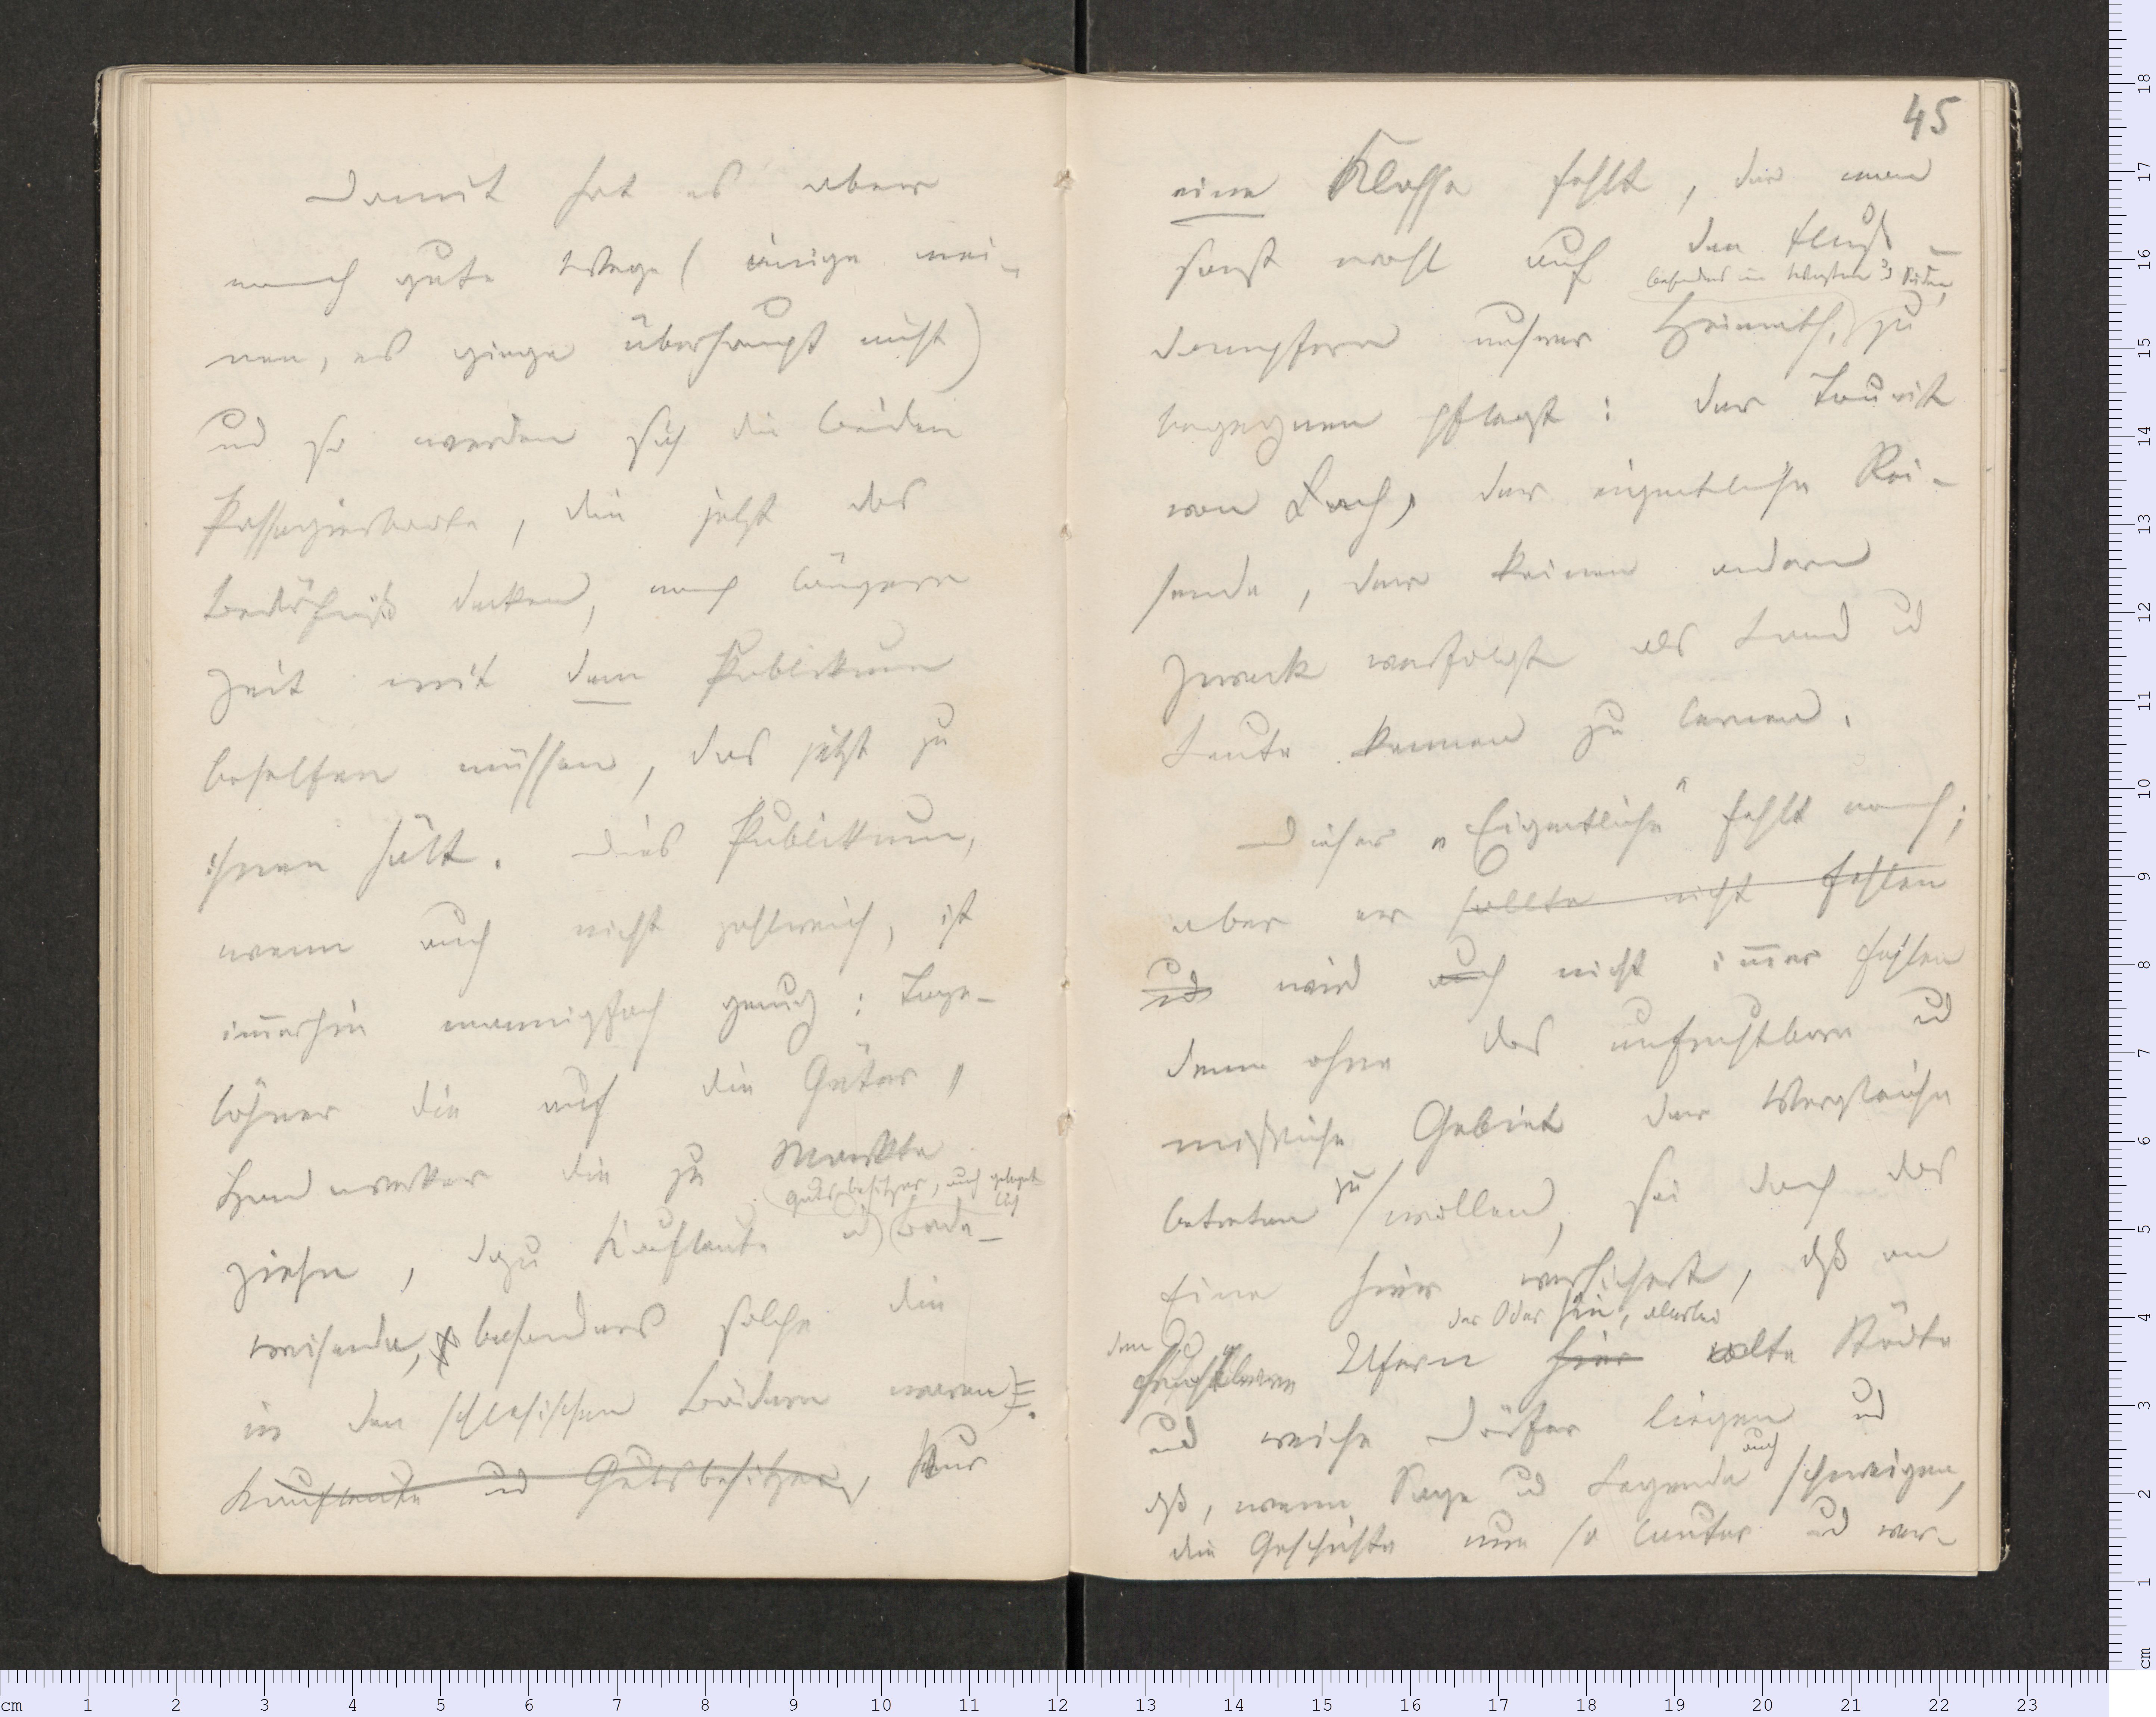 Damit hat es aber
noch gute Wege (einige mei-
nen, es ginge überhaupt nicht)
und so werden sich die beiden
Passagierboote, die jetzt das
Bedürfniß decken, noch längere
Zeit mit dem Publikum
behelfen müssen, das jetzt zu
ihnen hält. Dies Publikum,
wenn auch nicht zahlreich, ist
im̅erhin mannigfach genug: Tage-
löhner die auf die Güter,
Handwerker die zu Markte
Gutsbesitzer, auch gelegent-
lich
ziehn, dazu Kaufleute und Bade-
reisende, besonders solche die
in den schlesischen Bädern waren.
Kaufleute und Gutsbesitzer, Nur
45
eine Klasse fehlt, die man
sonst wohl auf den Fluß-
besonders im Westen u Süden,
dampfern unsrer Heimath, zu
begegnen pflegt: der Tourist
von Fach, der eigentliche Rei-
sende, der keinen andern
Zweck verfolgt als Land und
Leute kennen zu lernen.
Dieser „Eigentliche“ fehlt noch;
aber er sollte nicht fehlen
und wird auch nicht im̅er fehlen
denn ohne das unfruchtbare und
mißliche Gebiet der Vergleiche
betreten zu wollen, sei doch das
Eine hier versichert, dß an
der Oder hin, allerlei
den fruchtbaren Ufern hier alte Städte
und reiche Dörfer liegen und
dß, wenn Sage und Legende auch schweigen,
die Geschichte um so lauter und ver-